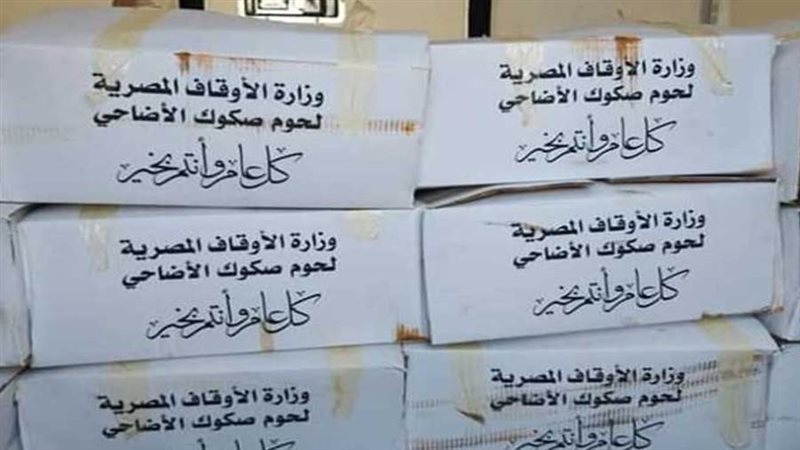 وزارة الأوقاف المصرية
لحوم صكوك الأضاحي
كل عام وأنتم بخير
وزارة الأوقاف المصرية
لحوم صكوك الأضاحي
كل عام وأنتم بخير
وزارة الأوقاف المصرية
لحوم صكوك الأضاحي
كل عام وأنتم بخير
وزارة الأوقاف المصرية
لحوم صكوك الأضاحي
كل عام وأنتم بخير
وزارة الأوقاف المصرية
لحوم صكوك الأضاحي
كل عام وأنتم بخير
وزارة الأوقاف المصرية
لحوم صكوك الأضاحي
كل عام وأنتم بخير